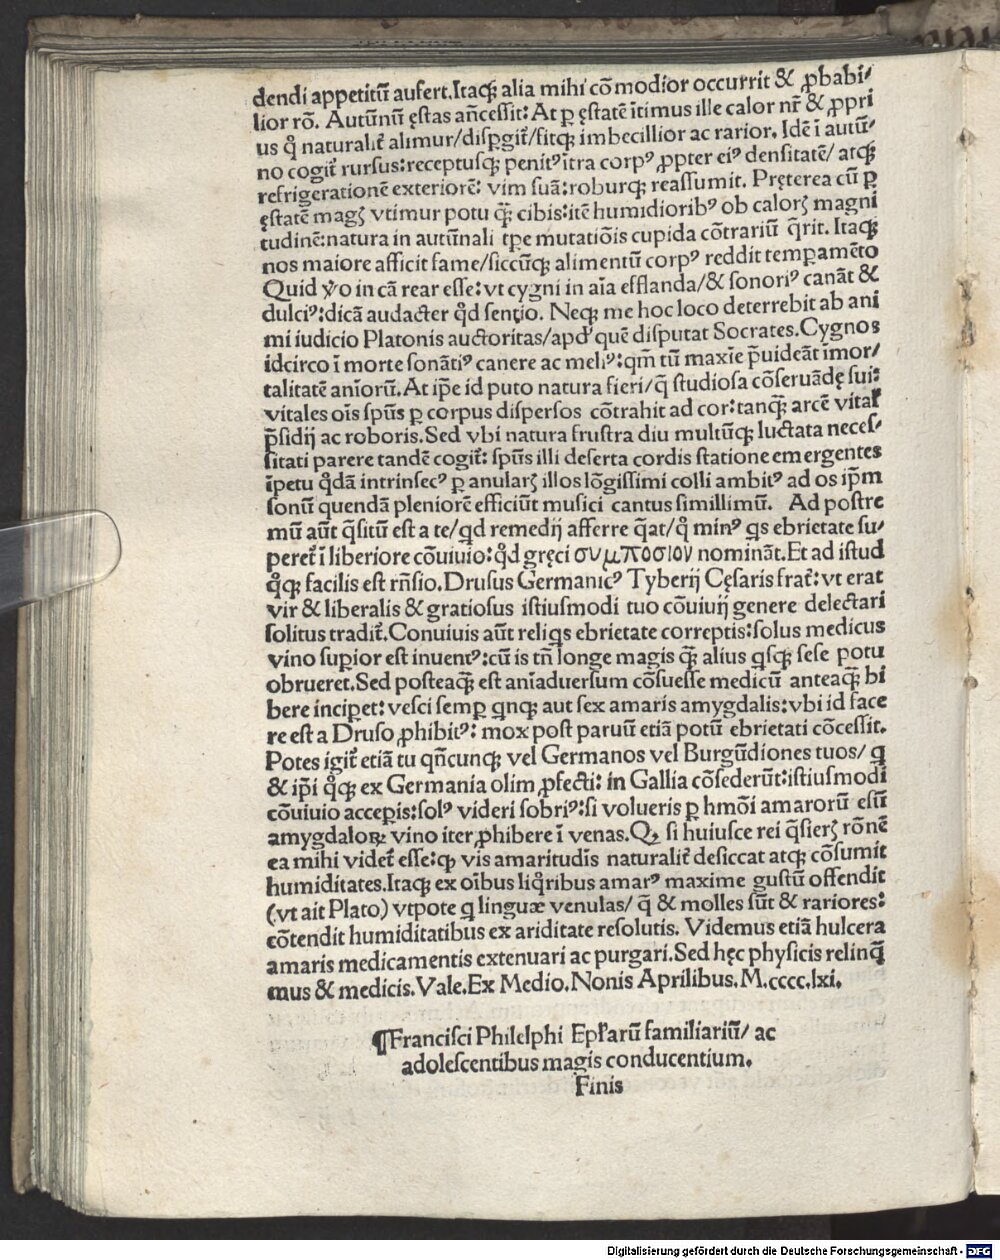 dendi appetitū aufert.Itaqꝫ alia mihi cōmodior occurrit & ꝓbabi/
lior rō. Autūnū ęstas añcessit: At ꝑ ęstatē ītimus ille calor nr̄ & ꝓpri
us q̊ naturalit̄ alimur/dispgit̄/fitqꝫ imbecillior ac rarior. Idē ī autū/
no cogit̄ rursus:receptusqꝫ penitꝰ ītra corpꝰ ꝓpter eiꝰ densitatē/ atqꝫ
refrigerationē exteriorē: vim suā:roburqꝫ reassumit. Pręterea cū ꝑ
ęstatē magꝭ vtimur potu q̄ꝫ cibis:itē humidioribꝰ ob calorꝭ magni
tudinē:natura in autūnali tꝑe mutatiōis cupida cōtrariū q̄rit. Itaqꝫ
nos maiore afficit fame/siccūqꝫ alimentū corpꝰ reddit tempamēto
Quid v̊o in cā rear esse: vt cygni in aīa efflanda/& sonoriꝰ canāt &
dulciꝰ:dicā audacter qd̄ sentio. Neqꝫ me hoc loco deterrebit ab ani
mi iudicio Platonis auctoritas/apd' quē disputat Socrates.Cygnos
idcirco ī morte sonātiꝰ canere ac meliꝰ:qm̄ tū maxīe p̄uideāt īmor/
talitatē anīorū.At ip̄e id puto natura fieri/q̄ studiosa cōseruādę sui:
vitales oīs spūs ꝑ corpus dispersos cōtrahit ad cor:tanq̄ꝫ arcē vital'
p̄sidij ac roboris.Sed vbi natura frustra diu multūqꝫ luctata neces/
sitati parere tandē cogit̄: spūs illi deserta cordis statione emergentes
īpetu qd̄ā intrinsecꝰ ꝑ anularꝭ illos lōgissimi colli ambitꝰ ad os ip̄m
sonū quendā pleniorē efficiūt musici cantus simillimū. Ad postre
mū aūt q̄situ̅ est a te/qd remedij afferre q̄at/q̊ minꝰ qs ebrietate su/
peret̄ ī liberiore cōuiuio:qd̄ gręci συμποσιον nomināt.Et ad istud
q̊qꝫ facilis est rn̄sio.Drusus Germanicꝰ Tyberij Cęsaris frat̄: vt erat
vir & liberalis & gratiosus istiusmodi tuo cōuiuij genere delectari
solitus tradit̄.Conuiuis aūt reliqs ebrietate correptis:solus medicus
vino supior est inuentꝰ:cū is tn̄ longe magis q̄ꝫ alius qsqꝫ sese potu
obrueret.Sed posteaq̄ꝫ est anīaduersum cōsuesse medicū anteaq̄ꝫ bi
bere incipet: vesci semp qnqꝫ aut sex amaris amygdalis:vbi id face
re est a Druso ꝓhibitꝰ: mox post paruū etiā potū ebrietati cōcessit.
Potes igit̄ etiā tu qn̄cunqꝫ vel Germanos vel Burgūdiones tuos/ q
& ip̄i q̊qꝫ ex Germania olim ꝓfecti: in Gallia cōsederūt:istiusmodi
cōuiuio accepis:solꝰ videri sobriꝰ:si volueris ꝑ hmōi amarorū esū
amygdaloꝝ vino iter ꝓhibere ī venas.Qꝫ si huiusce rei q̄sierꝭ rōnē
ea mihi videt̄ esse:ꝙ vis amaritudis naturalit̄ desiccat atqꝫ cōsumit
humiditates.Itaqꝫ ex oībus liq̊ribus amarꝰ maxime gustū offendit
(vt ait Plato) vtpote q linguæ venulas/ q̄ & molles sūt & rariores:
cōtendit humiditatibus ex ariditate resolutis. Videmus etiā hulcera
amaris medicamentis extenuari ac purgari.Sed hęc physicis relinq̄
mus & medicis.Vale.Ex Medio.Nonis Aprilibus.M.cccc.lxi.
¶Francisci Philelphi Epl'arū familiariū/ ac
adolescentibus magis conducentium.
Finis
Digitalisierung gefördert durch die Deutsche Forschungsgemeinschaft - DFG